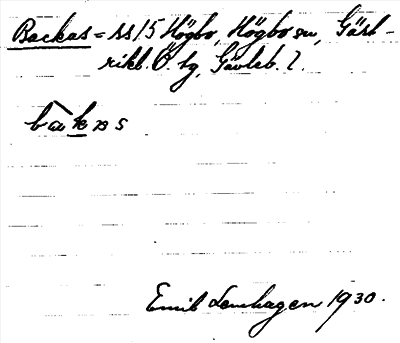 Backas = ss 15 Högbo, Högbo sn, Gäst-
rikl. Ö. tg, Gävleb. l.
bakas
Emil Lenhagen 1930.